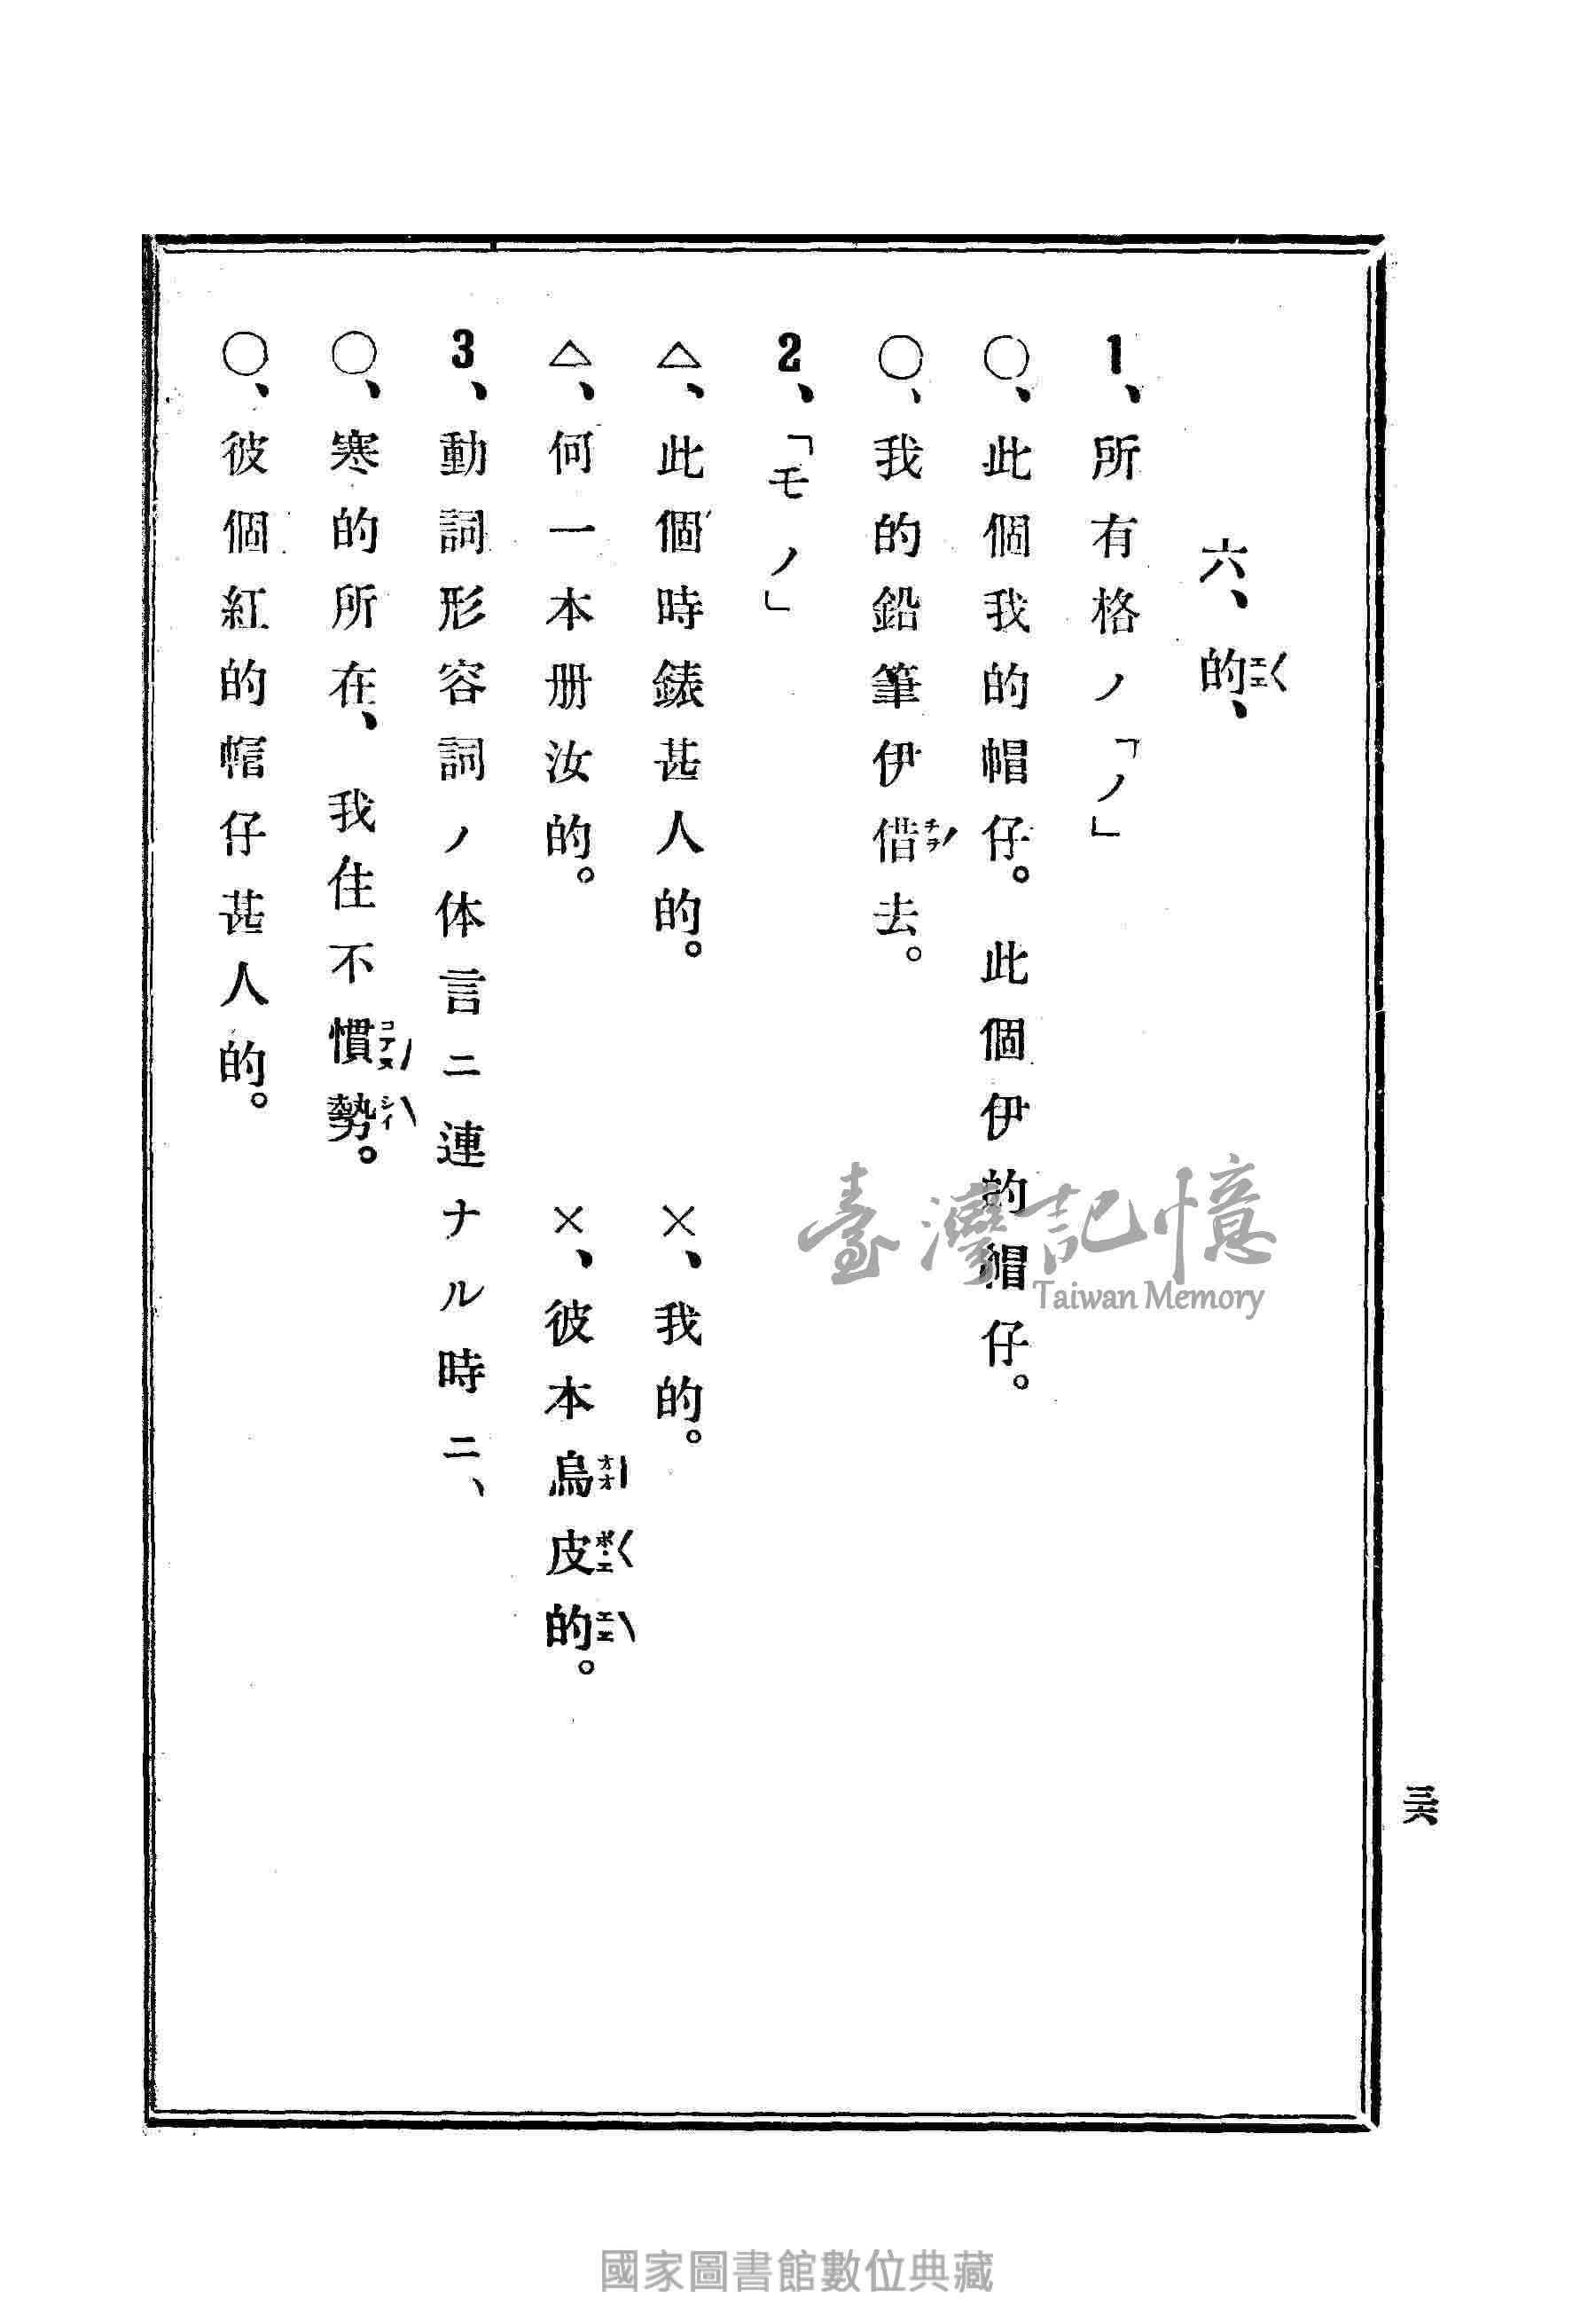 六、的、
1、所有格ノ「ノ」
〇、此個我的帽仔。此個伊的帽仔。
〇、我的鉛筆伊借去。
2、「モノ」
△、此個時錶甚人的。 ×、我的。
△、何一本册汝的。 ×、彼本烏皮的。
3、動詞形容詞ノ体言ニ連ナル時ニ、
〇、寒的所在、我住不慣勢。
〇、彼個紅的帽仔甚人的。
三六
臺灣記憶
Taiwan Memory
國家圖書館數位典藏